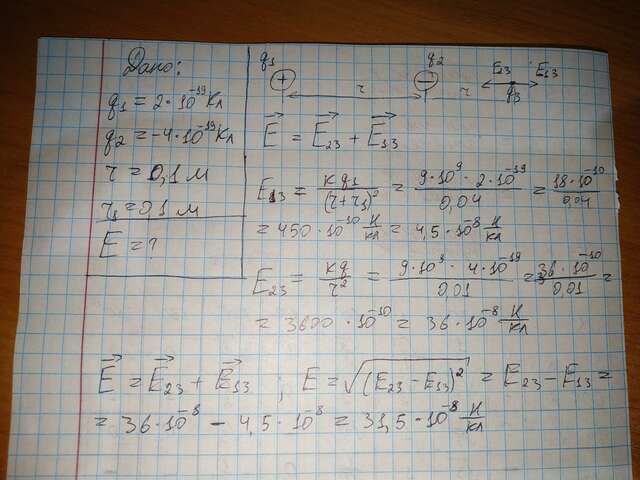 Дано:
q₁ = 2·10⁻¹⁹ Кл
q₂ = −4·10⁻¹⁹ Кл
r = 0,1 м
r₁ = 0,1 м
E = ?
q₁ q₂ E₂₃ E₁₃
+ − r r q₃
E⃗ = E⃗₂₃ + E⃗₁₃
E₁₃ = kq₁/(r+r₁)² = 9·10⁹·2·10⁻¹⁹/0,04 = 18·10⁻¹⁰/0,04
= 450·10⁻¹⁰ Н/Кл = 4,5·10⁻⁸ Н/Кл
E₂₃ = kq/r² = 9·10⁹·4·10⁻¹⁹/0,01 = 36·10⁻¹⁰/0,01 =
= 3600·10⁻¹⁰ = 36·10⁻⁸ Н/Кл
E⃗ = E⃗₂₃ + E⃗₁₃ ; E = √(E₂₃ − E₁₃)² = E₂₃ − E₁₃ =
= 36·10⁻⁸ − 4,5·10⁻⁸ = 31,5·10⁻⁸ Н/Кл